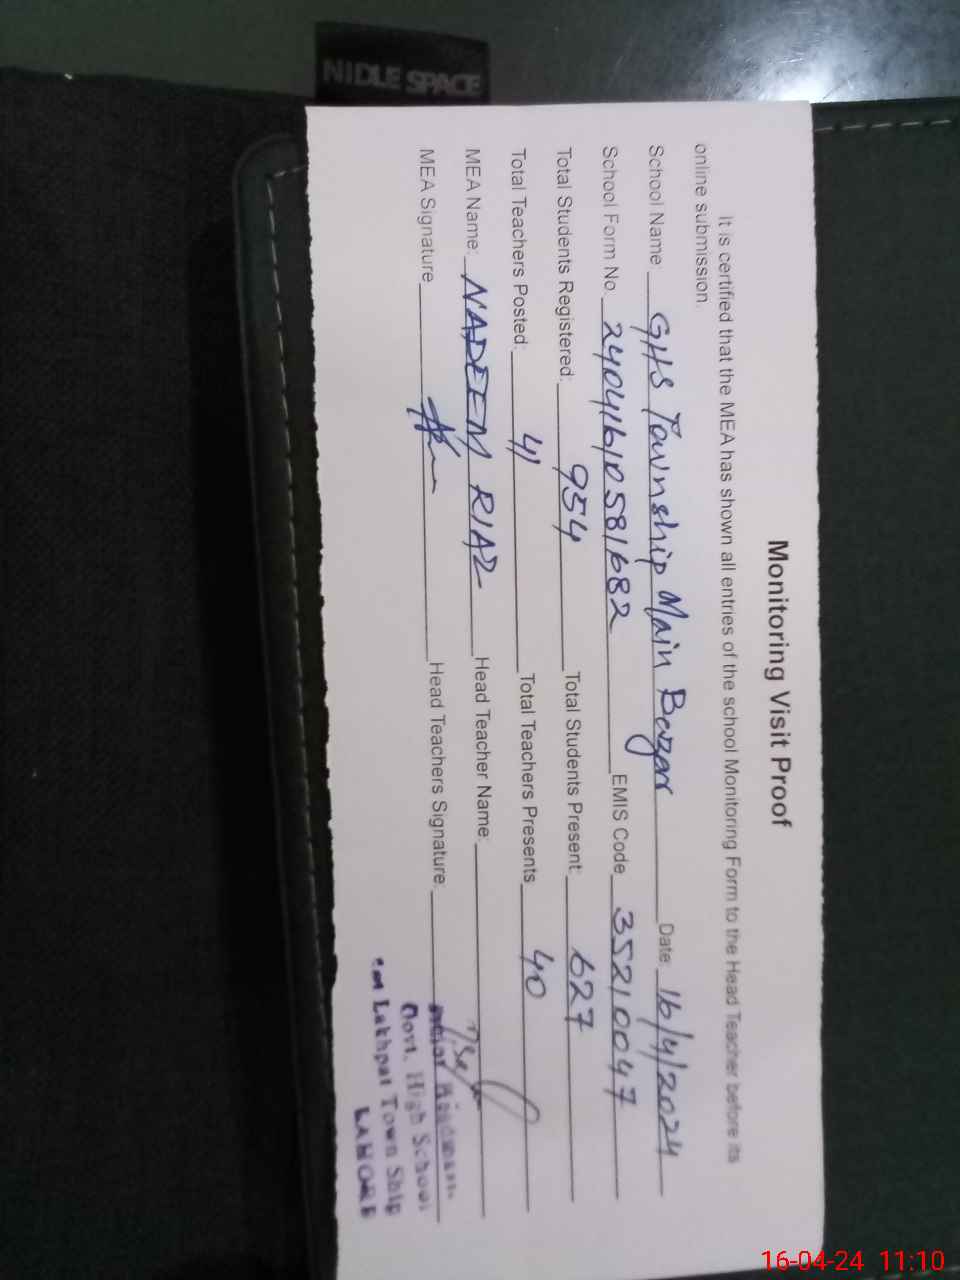 NIDLE SPACE
Monitoring Visit Proof
It is certified that the MEA has shown all entries of the school Monitoring Form to the Head Teacher before its
online submission.
School Name: GHS Township Main Bazar Date 16/4/2024
School Form No 24041610581682 EMIS Code 35210047
Total Students Registered: 954 Total Students Present: 627
Total Teachers Posted: 41 Total Teachers Presents 40
MEA Name: NADEEM RIAZ Head Teacher Name:
MEA Signature Head Teachers Signature:
Govt. High School
Lakhpat Town Ship
LAHORE
16-04-24 11:10